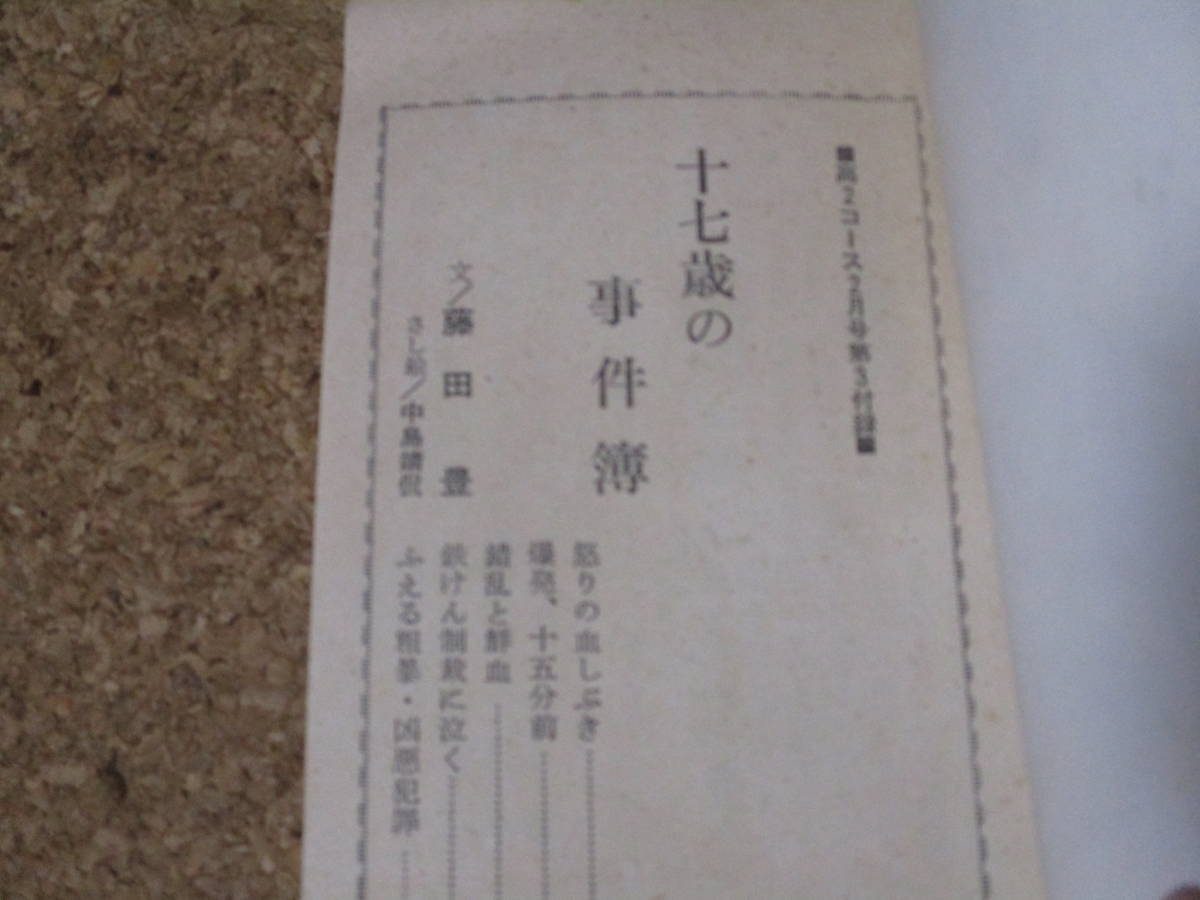 ■高2コース2月号第3付録■
十七歳の
事件簿
文/藤田豊
さし絵/中島靖侃
怒りの血しぶき
爆発、十五分前
錯乱と鮮血
鉄けん制裁に泣く
ふえる粗暴・凶悪犯罪